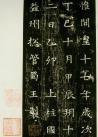 惟開皇十七年歲次
丁巳十月甲辰朔十
二日乙卯上柱國
益州摠管蜀王製